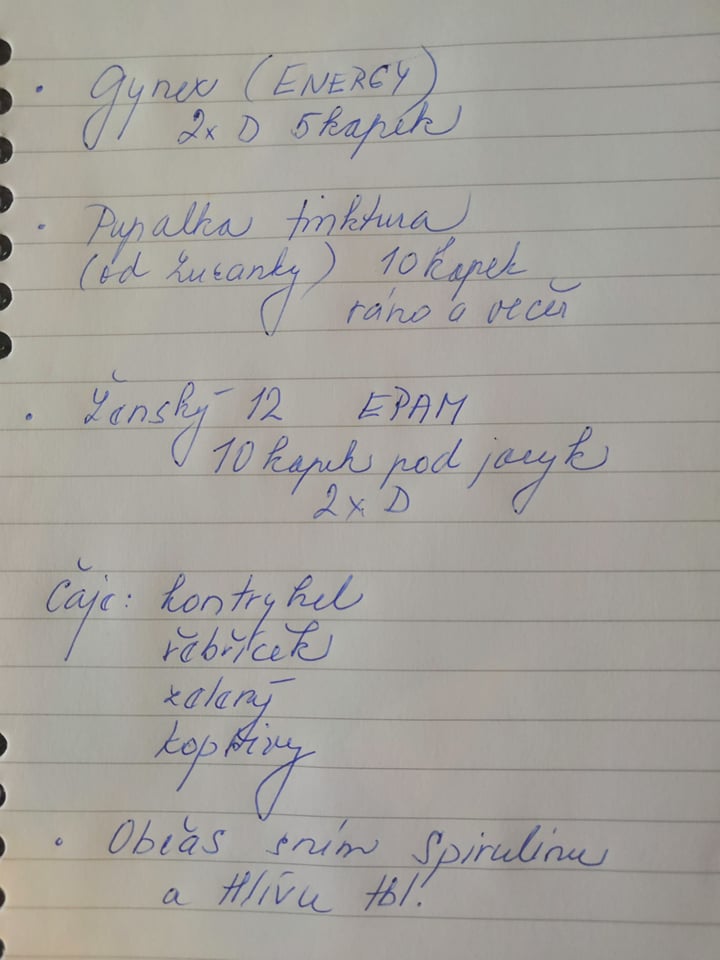 • Gynex (ENERGY)
2x D 5 kapek
• Pupalka tinktura
(od Zuzanky) 10 kapek
ráno a večer
• Ženský 12 EPAM
10 kapek pod jazyk
2x D
Čaje: kontryhel
řebříček
zelený
kopřivy
• Občas sním Spirulinu
a Hlívu tbl.